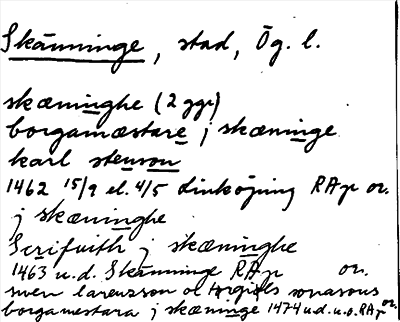 Skänninge, stad, Ög. l.
skæninghe (2 ggr)
borgamæstare j skæninge
karl stenson
1462 15/9 el. 4/5 Linköping RAp or.
j skæninghe
Scrifuith j skæninghe
1463 u.d. Skänninge RAp or.
swen larensson oc torgiels sonasons
borgamestara j skæninge 1474 u.d. u.o. RAp or.